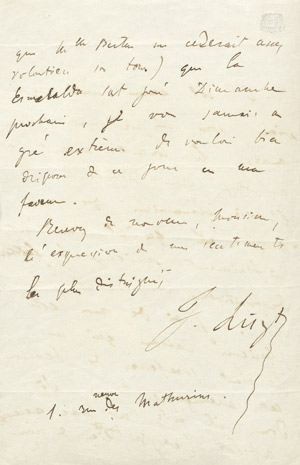 que M. Bertin me céderait assez
volontiers son tour) que la
Esmeralda soit joué Dimanche
prochain, je vous saurais un
gré extrême de vouloir bien
disposer de ce jour en ma
faveur.
Recevez de nouveau, Monsieur,
l'expression de mes sentiments
les plus distingués
F. Liszt
neuve
1. rue des Mathurins.